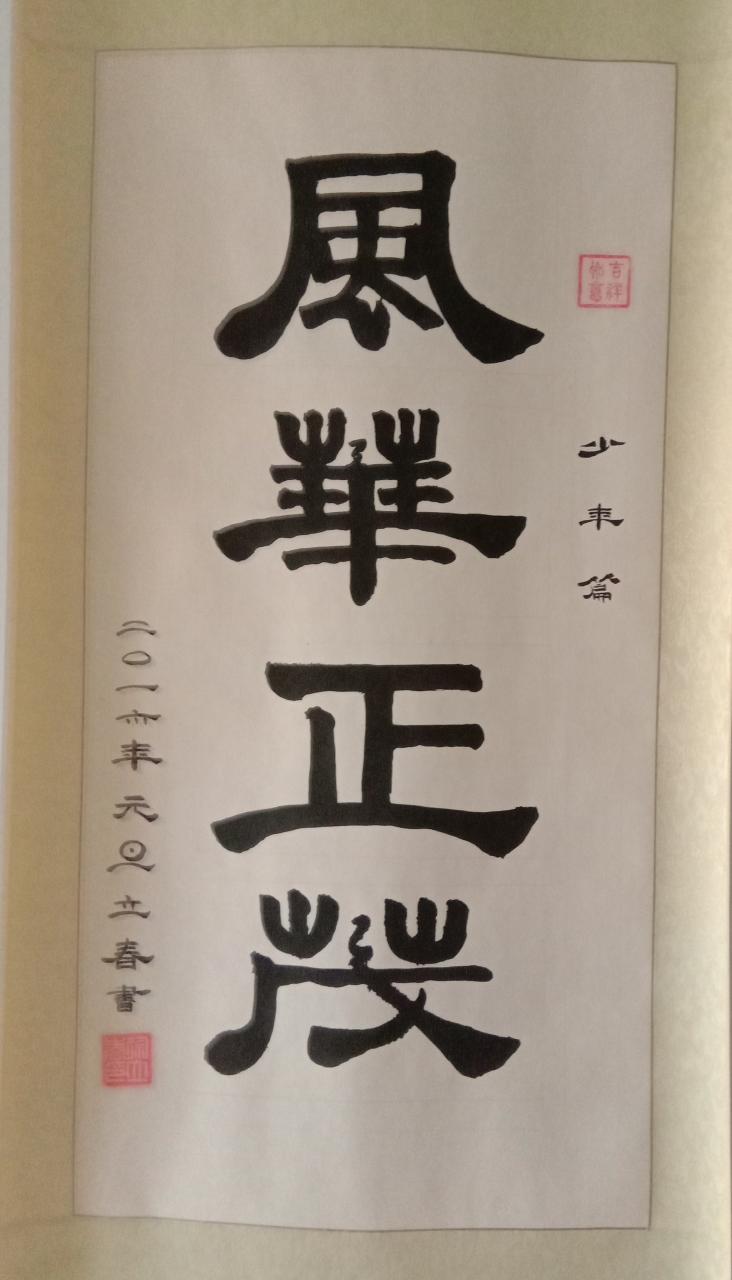 吉祥如意
少年篇
風華正茂
二〇一六年元旦立春書